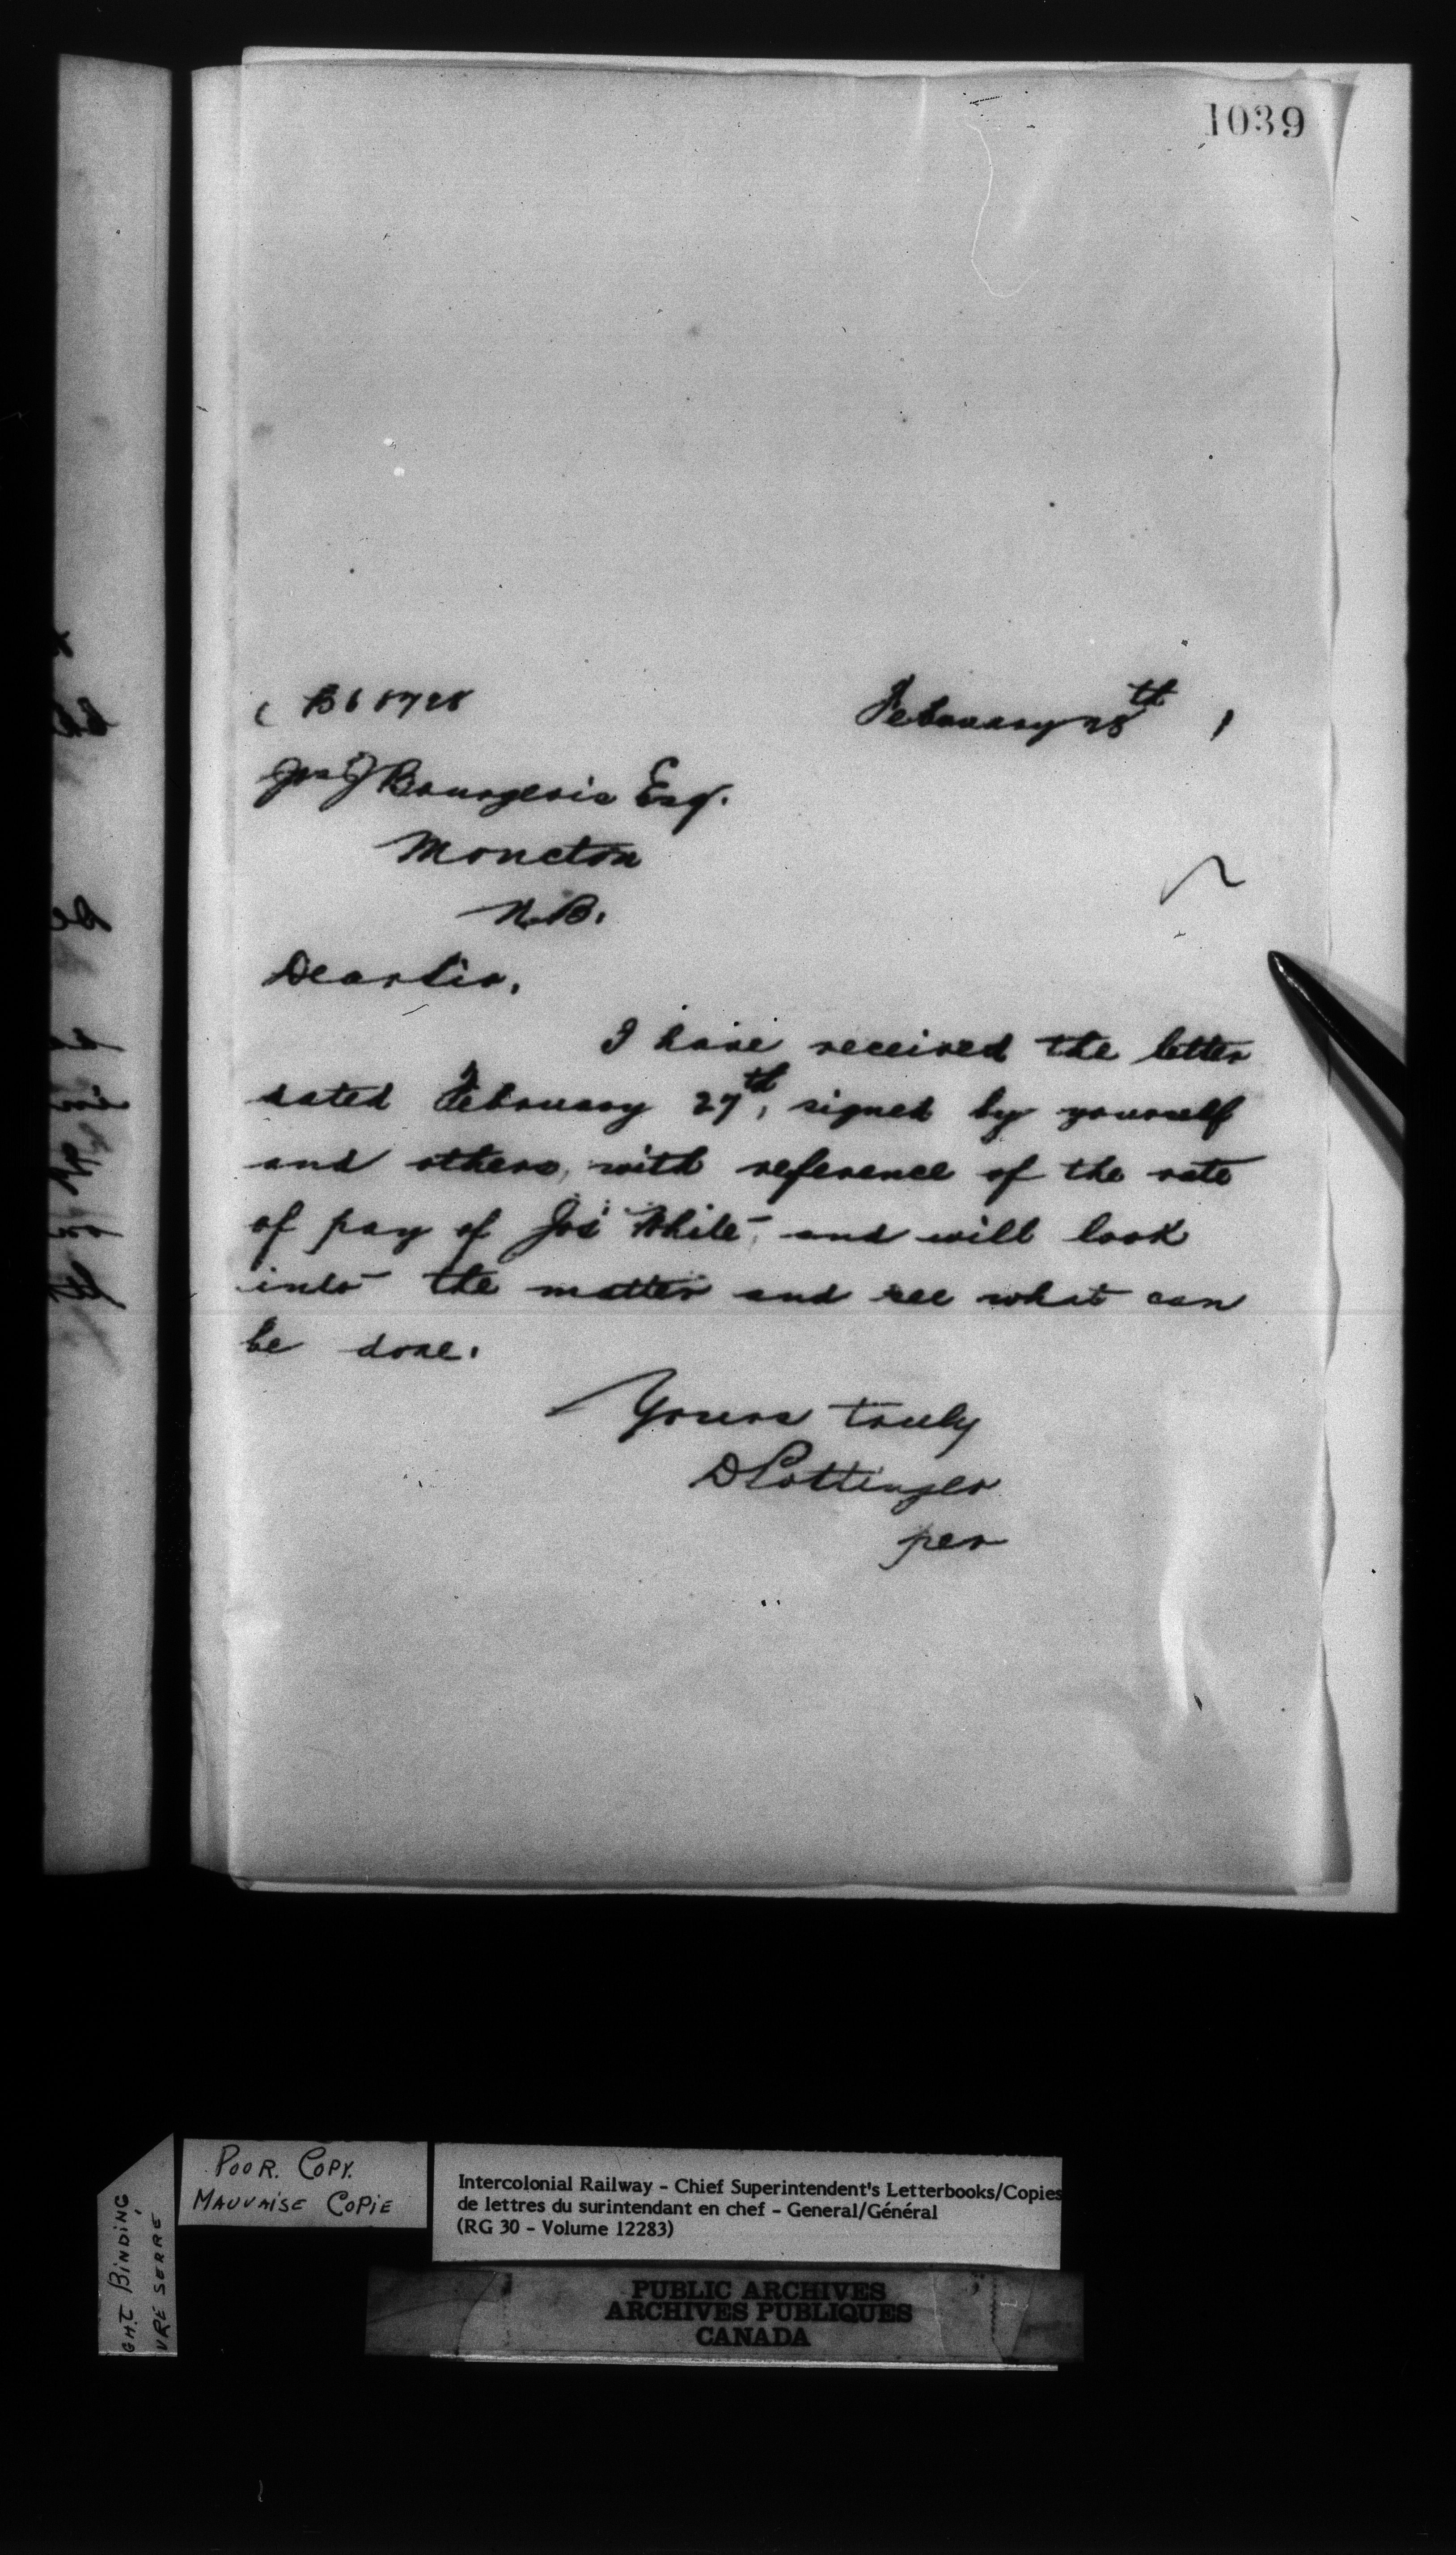 1039
B68728
February 28th
Jos J Bourgeois Esq.
Moncton
N.B.
Dear Sir,
I have received the letter
dated February 27th, signed by yourself
and others, with reference of the rate
of pay of Jos White, and will look
into the matter and see what can
be done.
Yours truly
D Pottinger
per
POOR. COPY.
MAUVAISE COPIE
GHT BINDING
VRE SERRÉ
Intercolonial Railway - Chief Superintendent's Letterbooks/Copies
de lettres du surintendant en chef - General/Général
(RG 30 - Volume 12283)
PUBLIC ARCHIVES
ARCHIVES PUBLIQUES
CANADA